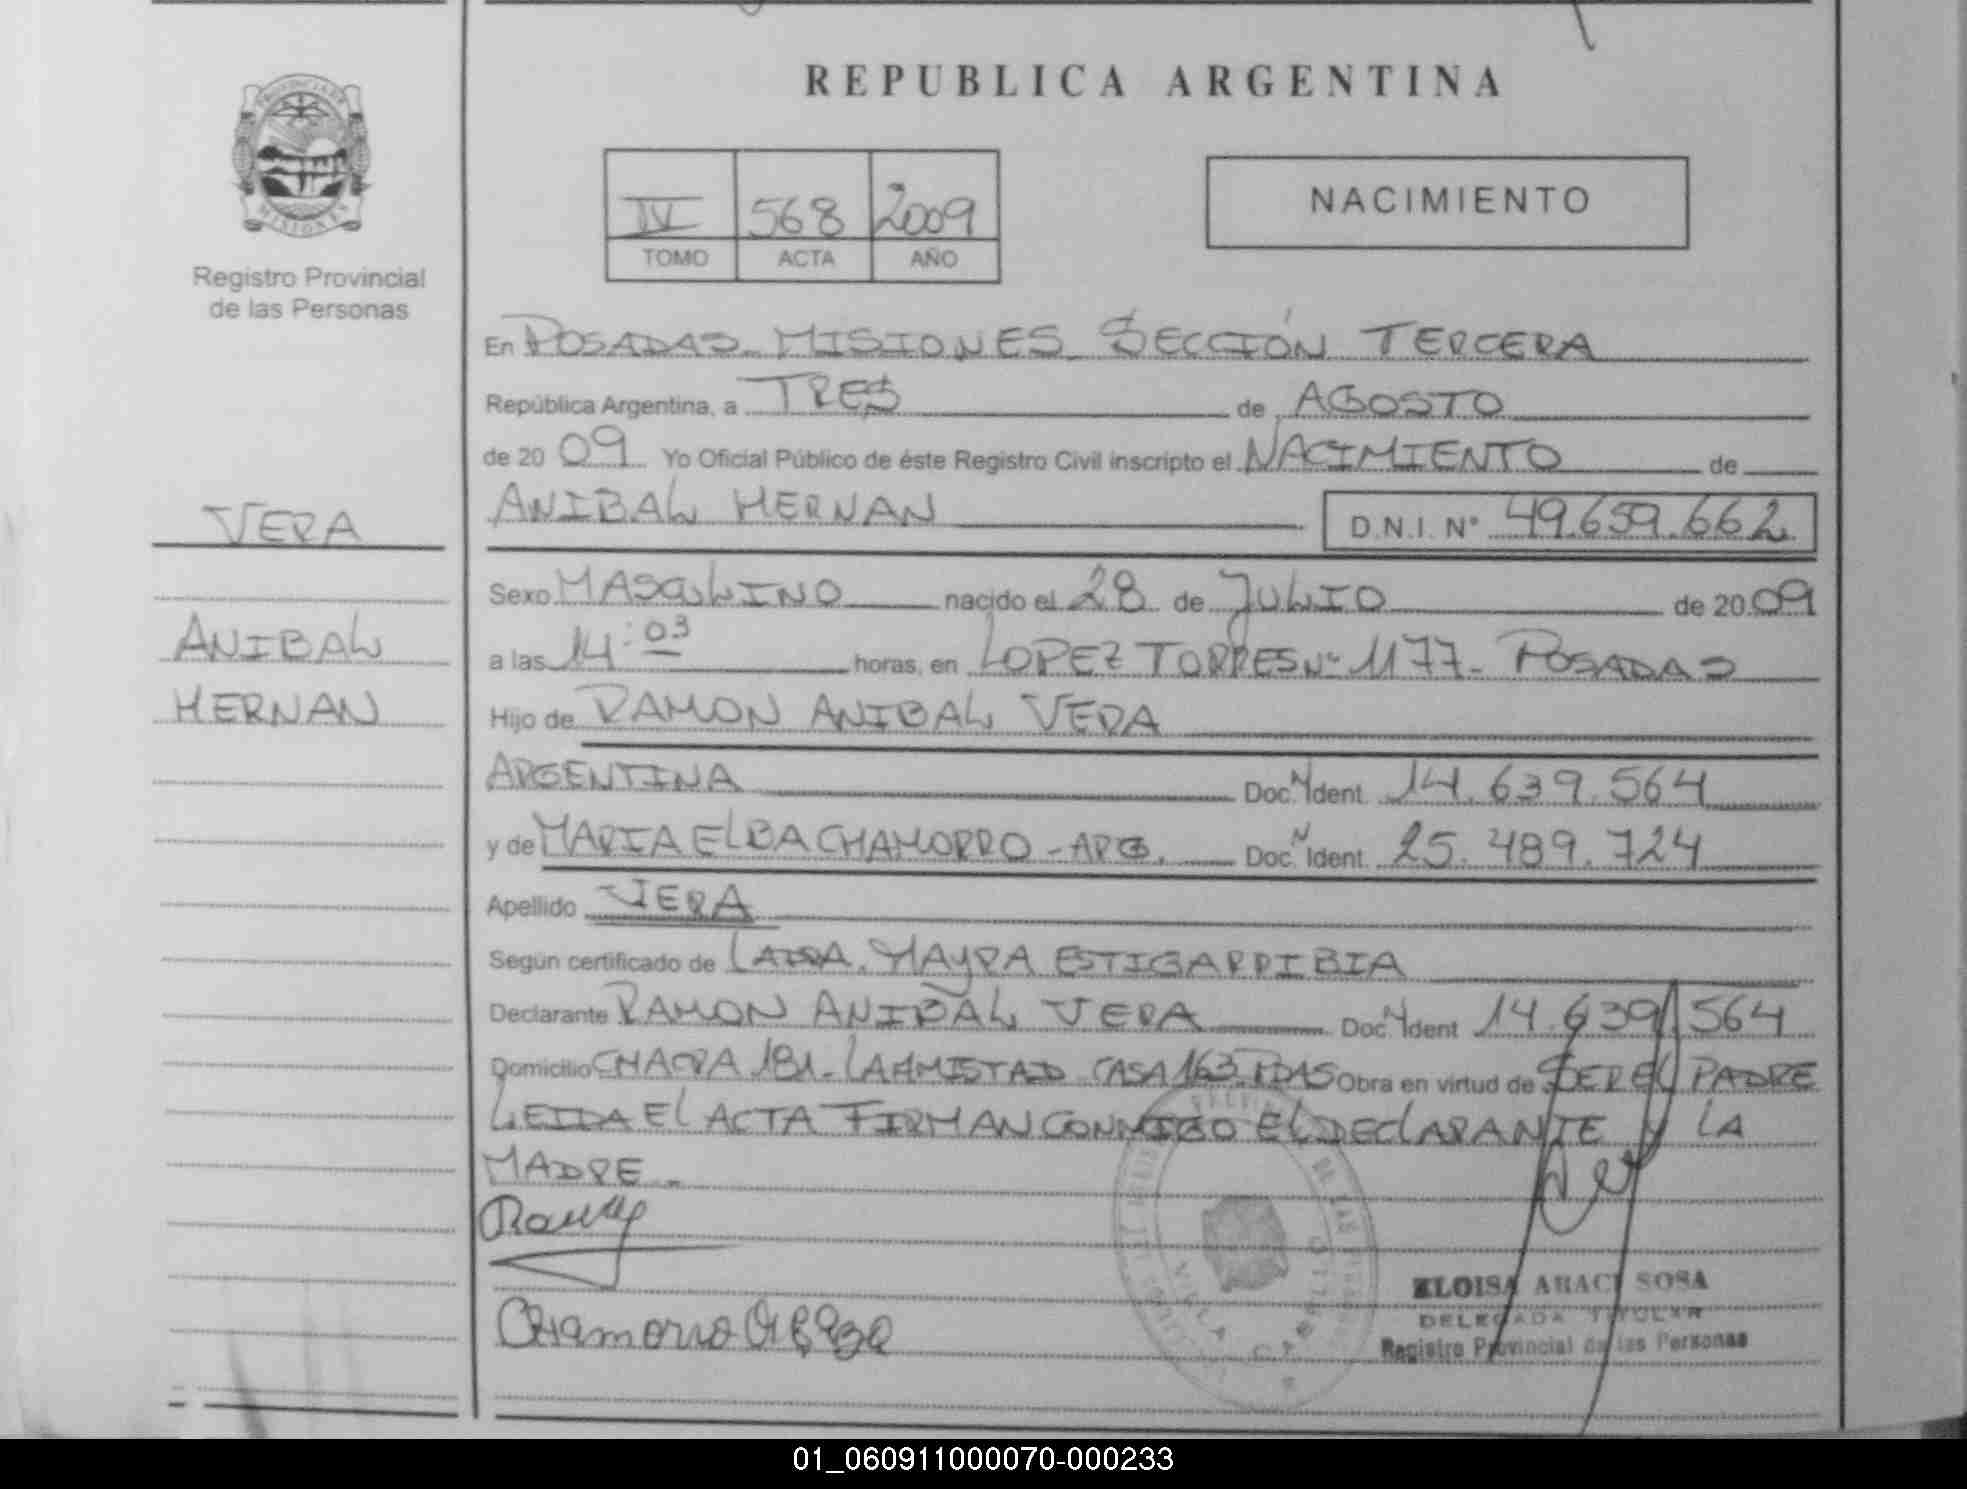 REPUBLICA ARGENTINA
PROVINCIA DE MISIONES
Registro Provincial
de las Personas
IV 568 2009
TOMO ACTA AÑO
NACIMIENTO
En POSADAS MISIONES SECCIÓN TERCERA
República Argentina, a TRES de AGOSTO
de 20 09 Yo Oficial Público de éste Registro Civil inscripto el NACIMIENTO de
ANIBAL HERNAN D.N.I. Nº 49.659.662
VERA
ANIBAL
HERNAN
Sexo MASCULINO nacido el 28 de JULIO de 20 09
a las 14:03 horas, en LOPEZ TORRES Nº 1177- POSADAS
Hijo de RAMON ANIBAL VERA
ARGENTINA Doc. N Ident. 14.639.564
y de MARIA ELBA CHAMORRO - ARG. Doc. N Ident. 25.489.724
Apellido VERA
Según certificado de LA DRA. MAYRA ESTIGARRIBIA
Declarante RAMON ANIBAL VERA Doc. N Ident 14.639.564
Domicilio CHACRA 181- LA AMISTAD CASA 163 PDAS Obra en virtud de SER EL PADRE
LEIDA EL ACTA FIRMAN CONMIGO EL DECLARANTE Y LA
MADRE.-
Chamorro
ELOISA ARACI SOSA
DELEGADA TITULAR
Registro Provincial de las Personas
VILLA CABELLO
01_060911000070-000233